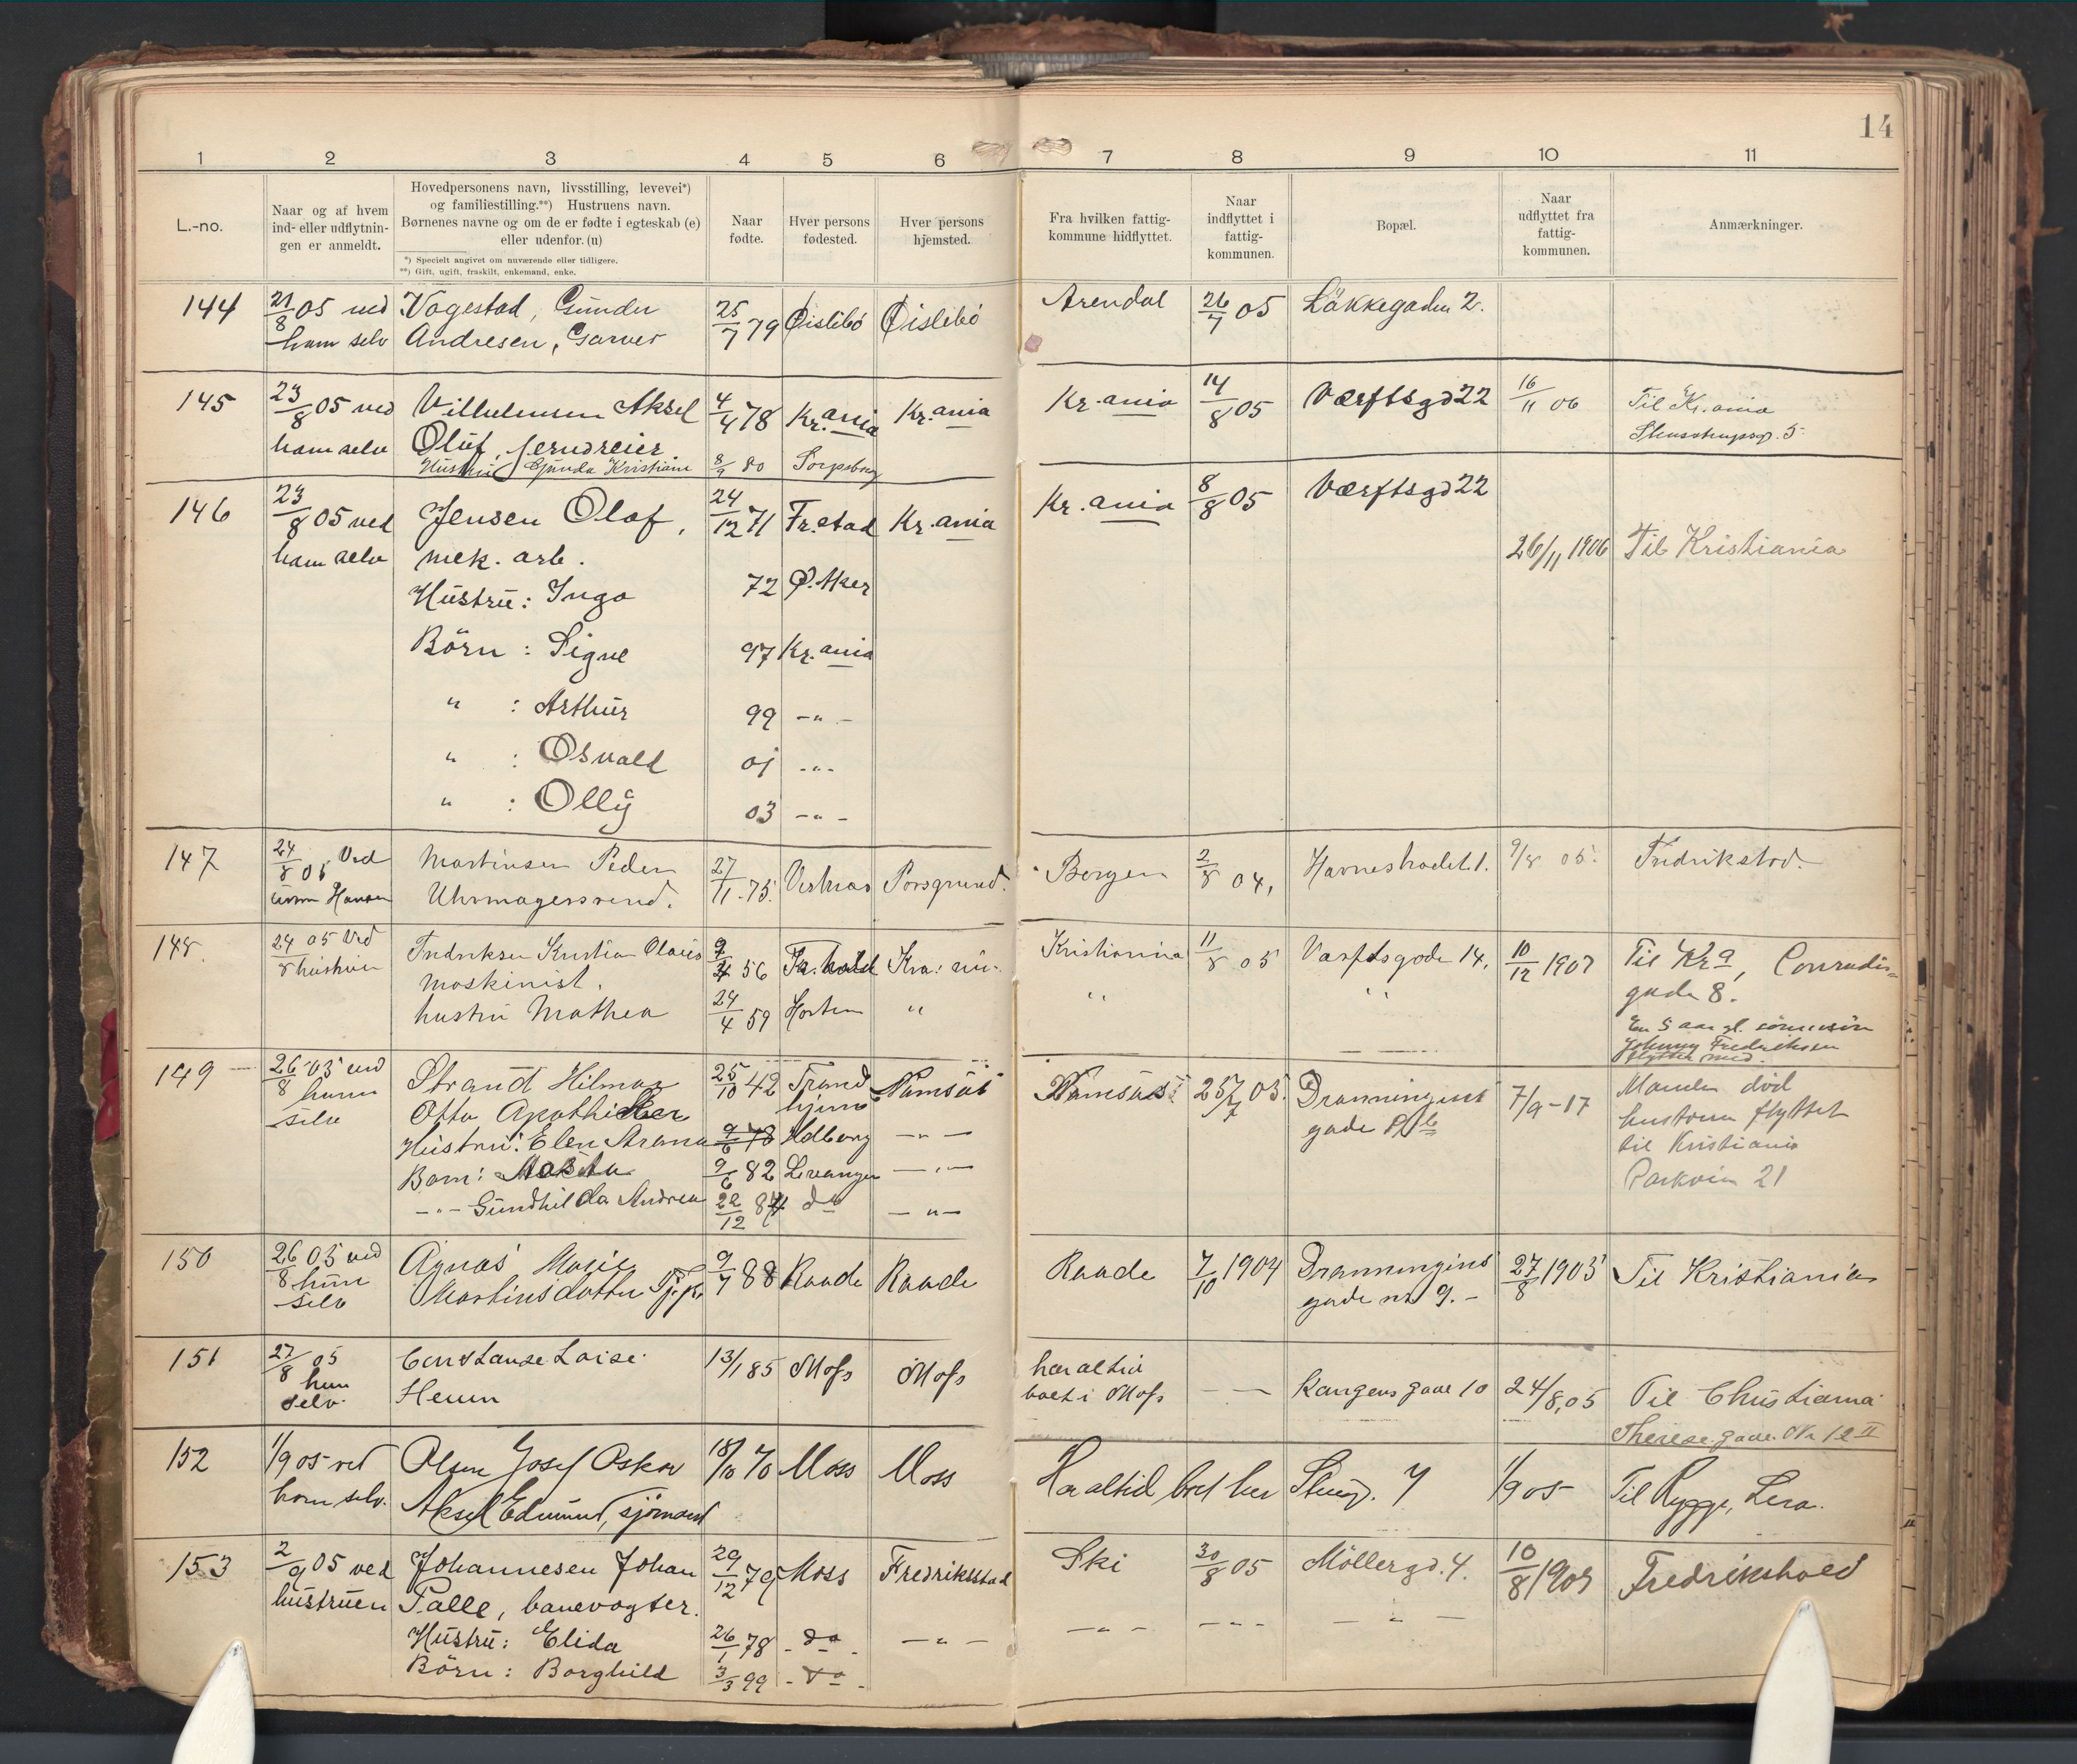 14
1 2 3 4 5 6 7 8 9 10 11
L.-no.
Naar og af hvem
ind- eller udflytnin-
gen er anmeldt.
Hovedpersonens navn, livsstilling, levevei*)
og familiestilling.**) Hustruens navn.
Børnenes navne og om de er fødte i egteskab (e)
eller udenfor. (u)
*) Specielt angivet om nuværende eller tidligere.
**) Gift, ugift, fraskilt, enkemand, enke.
Naar
fødte.
Hver persons
fødested.
Hver persons
hjemsted.
Fra hvilken fattig-
kommune hidflyttet.
Naar
indflyttet i
fattig-
kommunen.
Bopæl.
Naar
udflyttet fra
fattig-
kommunen.
Anmærkninger.
144 21/8 05 ved Vagestad, Gunder 25/7 79 Øislebö Øislebö Arendal 26/7 05 Läkkegaden 2.
ham selv Andresen, Garver
145 23/8 05 ved Vilhelmsen Aksel 4/4 78 Kr.ania Kr.ania Kr.ania 14/8 05 Værftsgd 22 16/11 06 Til Kr.ania
ham selv Oluf, jerndreier 5
Hustru Gunda Kristiane 8/9 80 Sarpsborg
146 23/8 05 ved Jensen Olaf, 24/12 71 Fr.stad Kr.ania Kr.ania 8/8 05 Værftsgd 22
ham selv mek. arb. 26/11 1906 Til Kristiania
Hustru: Inga 72 Ø. Aker
Börn: Signe 97 Kr.ania
" : Arthur 99 -"-
" : Osvald 01 -"-
" : Olly 03 -"-
147 24/8 05 Ved Martinsen Peder 27/11 75. Porsgrund. Bergen 2/8 04, Havnestrædet 1. 9/8 05. Fredrikstad.
Hansen Uhrmagersvend.
148. 24/8 05 Ved Fredriksen Kristian Olaus 56 Fr.hald Kra: Kristiania 11/8 05 Varftsgade 14. 10/12 1907 Til Kra, Conradis-
hustruen maskinist. gade 8.
hustru Mathea 24/4 59 Horten " " " En 5 aar gl. sønnesøn
Johnny Fredriksen
flyttet med.
149 26/8 05 ved Strand Hilmar 25/10 42 Trond Namsos Namsos 25/7 05. Dronningens 7/9-17 Manden död
ham Otto Apotheker hjem gade hustruen flyttet
selv Hustru: Elen 78 -"- til Kristiania
Barn: 9/6 82 Levanger -"- Parkvein 21
-"- Gundhilda Andrea 22/12 84 do -"-
150 26/8 05 ved Agnes Marie 9/7 88 Raade Raade Raade 7/10 1904 Dronningens 27/8 1905 Til Kristiania
hun Martinsdatter gade no 9.-
selv
151 27/8 05 Constanse Loise 13/1 85 Moss Moss har altid - - Kongens gade 10 24/8,05 Til Christiania
hun Henen boet i Moss Therese gade No 12 II
selv.
152 1/9 05 ved Olsen Josef Oskar 18/10 70 Moss Moss Har altid boet her 7 1/9 05 Til Rygge, Lera.
ham selv. Aksel Edmund, sjömand
153 2/9 05 ved Johannesen Johan 29/12 79 Moss Fredriksstad Ski 30/8 05 Möllergd. 4. 10/8 1905 Fredrikshald
hustruen Palle, banevogter.
Hustru: Elida 26/1 78 -do- -"- -"- -"- -"-
Börn: Borghild 3/3 99 -do-